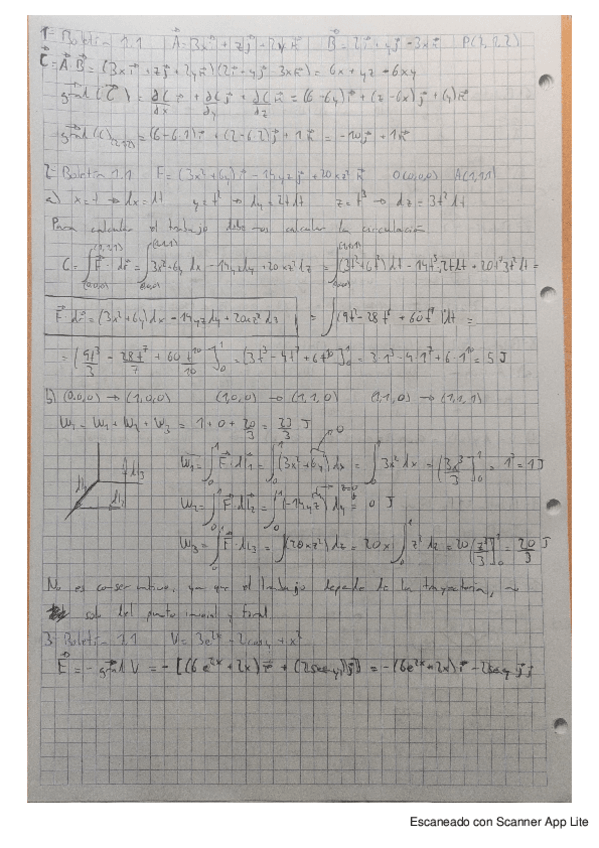 1- Boletín 1.1 A⃗ = 3x i⃗ + z j⃗ - 2y k⃗ B⃗ = 2 i⃗ + y j⃗ - 3x k⃗ P(1,2,2)
C⃗ = A⃗ B⃗ = = 6x + yz - 6xy
grad (C⃗) = ∂C/∂x i⃗ + ∂C/∂y j⃗ + ∂C/∂z k⃗ = (6-6y) i⃗ + (z-6x) j⃗ + (y) k⃗
2- Boletín 1.1 F = (3x²+6y) i⃗ - 14yz j⃗ + 20xz² k⃗ O(0,0,0) A(1,1,1)
a) x = t → dx = dt y = t² → dy = 2t dt z = t³ → dz = 3t² dt
Para calcular el trabajo calcular la circulación
C = ∫ F⃗ · dr⃗ = ∫ 3x²+6y dx - 14yz dy + 20xz² dz = ∫
F⃗ · dr⃗ = (3x²+6y) dx - 14yz dy + 20xz² dz
= ∫ (9t² - 28t⁶ + 60t⁹) dt =
= [9t³/3 - 28t⁷/7 + 60t¹⁰/10]₀¹ = (3t³ - 4t⁷ + 6t¹⁰)₀¹ = 3·1³ - 4·1⁷ + 6·1¹⁰ = 5 J
b) (0,0,0) → (1,0,0) (1,0,0) → (1,1,0) (1,1,0) → (1,1,1)
= W₁ + W₂ + W₃ = 1 + 0 + 20/3 = 23/3 J
W₁ = ∫₀¹ F⃗ · dl₁ = ∫₀¹ (3x²+6y) dx = ∫₀¹ 3x² dx = (3x³/3)₀¹ = 1³ = 1 J
W₂ = ∫₀¹ F⃗ · dl₂ = ∫₀¹ (-14yz) dy = 0 J
W₃ = ∫₀¹ F⃗ · dl₃ = ∫(20xz²) dz = 20x ∫₀¹ z² dz = 20 (z³/3)₀¹ = 20/3 J
No es conservativo, ya que el trabajo depende de la trayectoria, no
solo del punto inicial y final
3- Boletín 1.1 V = 3e²ˣ - 2cos y + x²
E⃗ = - grad V = - [(6e²ˣ + 2x) i⃗ + (2sen y) j⃗] = -(6e²ˣ + 2x) i⃗ - 2sen y j⃗
Escaneado con Scanner App Lite